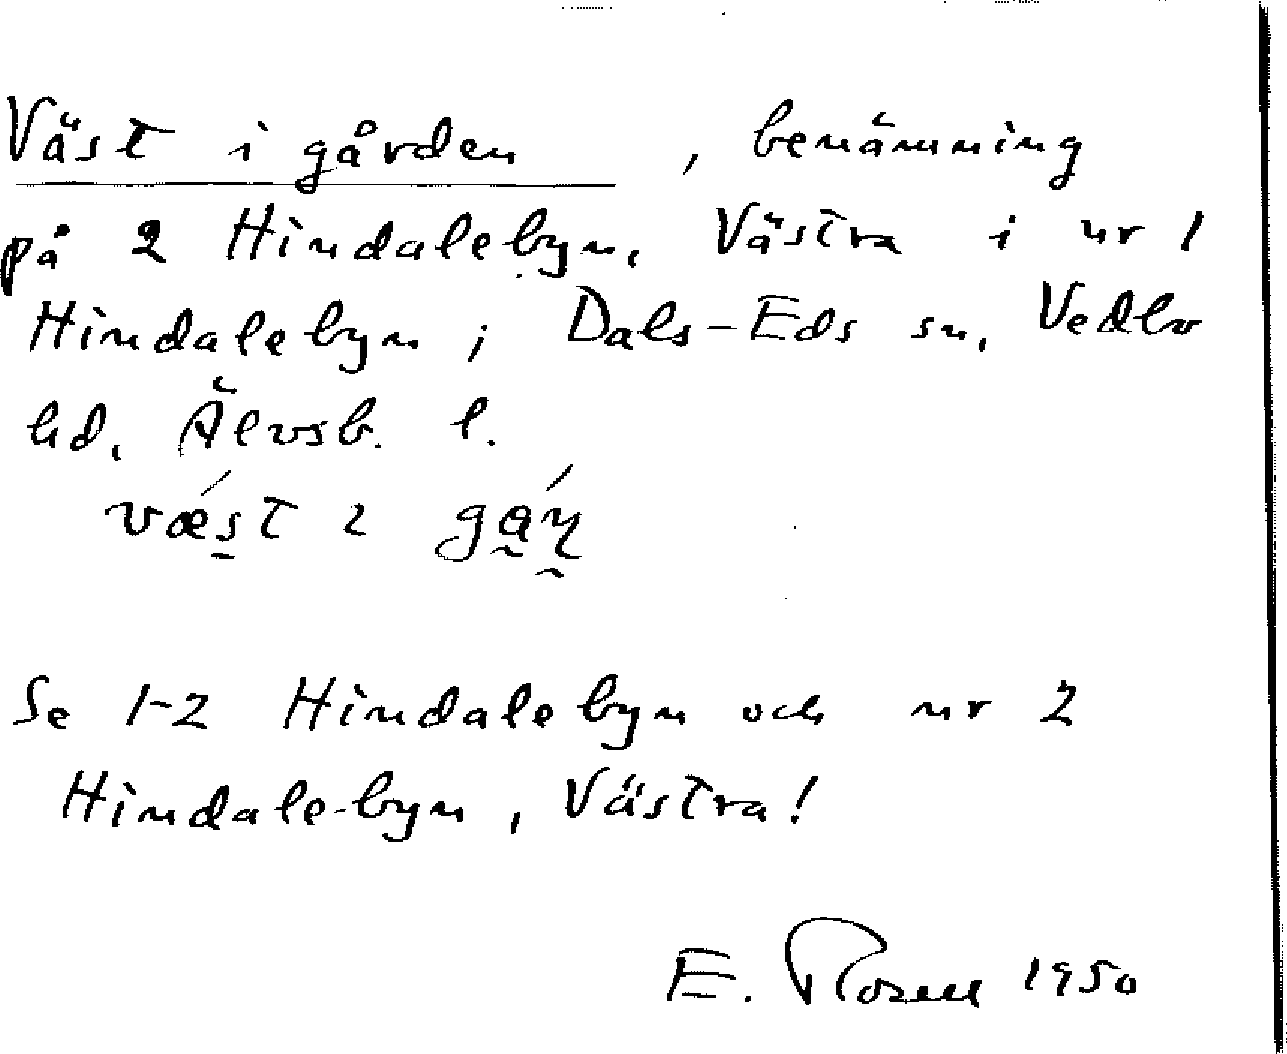 Väst i gården, benämning
på 2 Hindalebyn, Västra i nr 1
Hindalebyn i Dals-Eds sn, Vedbo
hd, Älvsb. l.
væ´st ɩ
Se 1-2 Hindalebyn och nr 2
Hindale-byn, Västra!
E. Rosell 1950